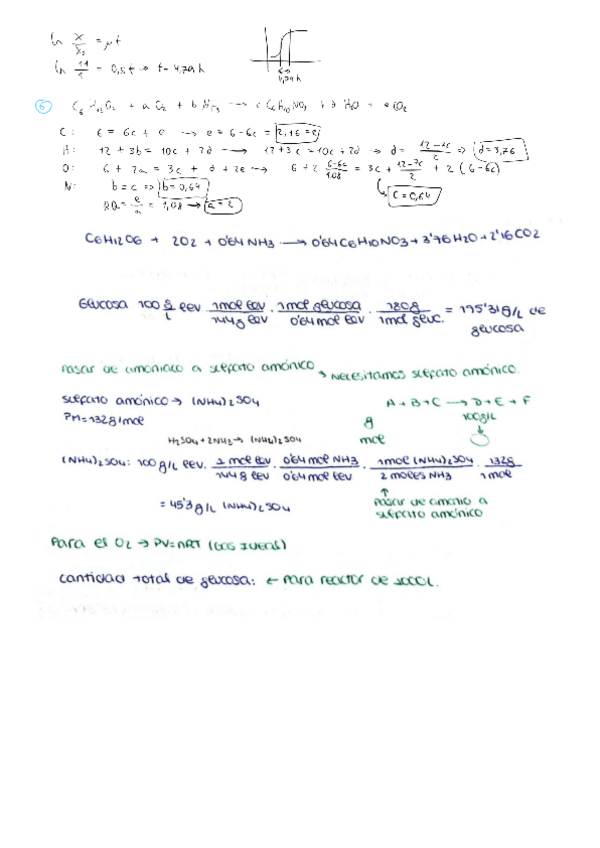 ln x/x₀ = μt
ln 11/1 = 0,5t → t = 4,79 h
t =
4,79 h
⑥ C₆H₁₂O₆ + aO₂ + bNH₃ → cC₆H₁₀NO₃ + dH₂O + eCO₂
C: 6 = 6c + e → e = 6-6c = 2,16 = e
H: 12 + 3b = 10c + 2d → 12 + 3c = 10c + 2d → d = 12-7c/2 ⇒ d = 3,76
O: 6 + 2a = 3c + d + 2e → 6 + 2 6-6c/1,08 = 3c + 12-7c/2 + 2(6-6c)
N: b = c ⇒ b = 0,64
c = 0,64
RQ = e/a = 1,08 → a = 2
C6H12O6 + 2O2 + 0'64NH3 → 0'64C6H10NO3 + 3'76H2O + 2'16CO2
Glucosa 100 g/L lev · 1mol lev/144g lev · 1mol glucosa/0'64mol lev · 180g/1mol gluc. = 195'31g/L de
glucosa
Pasar de amoniaco a sulfato amónico → Necesitamos sulfato amónico.
sulfato amónico → (NH4)2SO4
A + B + C → D + E + F
PM = 132g/mol
g
100g/L
H2SO4 + 2NH3 → (NH4)2SO4
mol
(NH4)2SO4: 100g/L lev. · 1 mol lev/144g lev · 0'64 mol NH3/0'64 mol lev · 1mol (NH4)2SO4/2 moles NH3 · 132g/1mol
= 45'3g/L (NH4)2SO4
Pasar de amonio a
sulfato amónico
Para el O2 → PV=nRT (Gas Ideal)
Cantidad total de glucosa: ← Para reactor de 1000L.